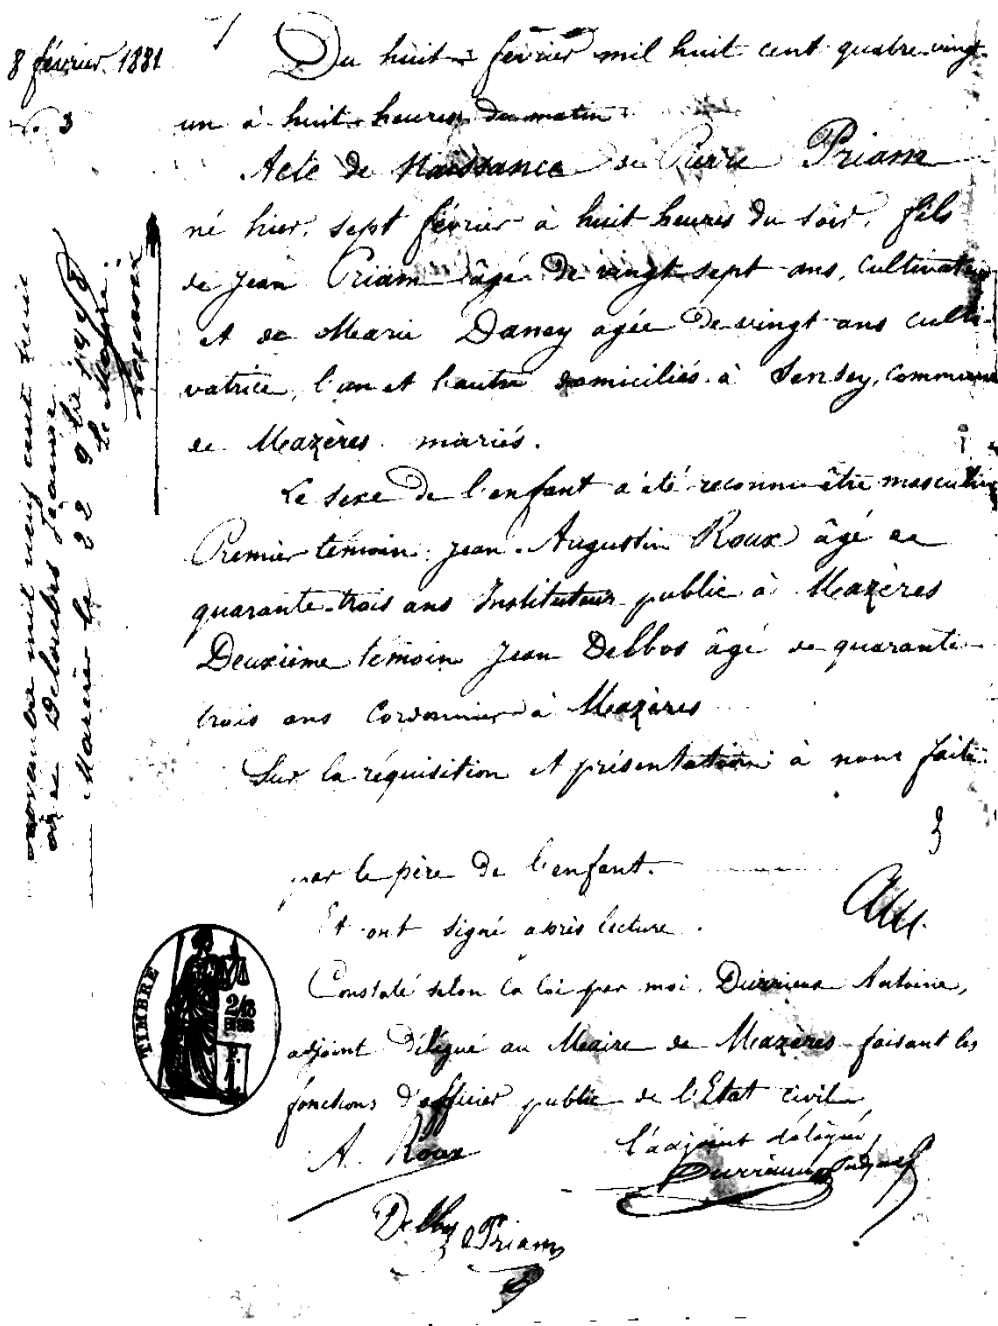 8 février 1881
N° 3
Du huit février mil huit cent quatre-vingt
un à huit heures du matin
Acte de Naissance de Pierre Priam
né hier, sept février à huit heures du soir, fils
de Jean Priam âgé de vingt sept ans, cultivateur
et de Marie Daney agée de vingt ans culti-
vatrice, l'un et l'autre domiciliés à Sensey, commune
de Mazères mariés.
Le sexe de l'enfant a été reconnu être masculin
Premier témoin Jean-Augustin Roux âgé de
quarante-trois ans Instituteur public à Mazères
Deuxième témoin Jean Delbos âgé de quarante
trois ans Cordonnier à Mazères
Sur la réquisition et présentation à nous faite
par le père de l'enfant.
Et ont signé après lecture.
Constaté selon la loi par moi, Durrieux Antoine,
adjoint délégué au Maire de Mazères faisant les
fonctions d'officier public de l'Etat civil
L'adjoint délégué,
A. Roux
Delbos Priam
novembre mil neuf cent
avec Jeanne
Mazères le 22 9bre
Le Maire
TIMBRE